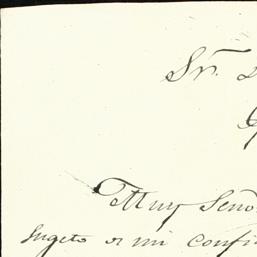 Sr.
Muy Seño
Sugeto de mi confi